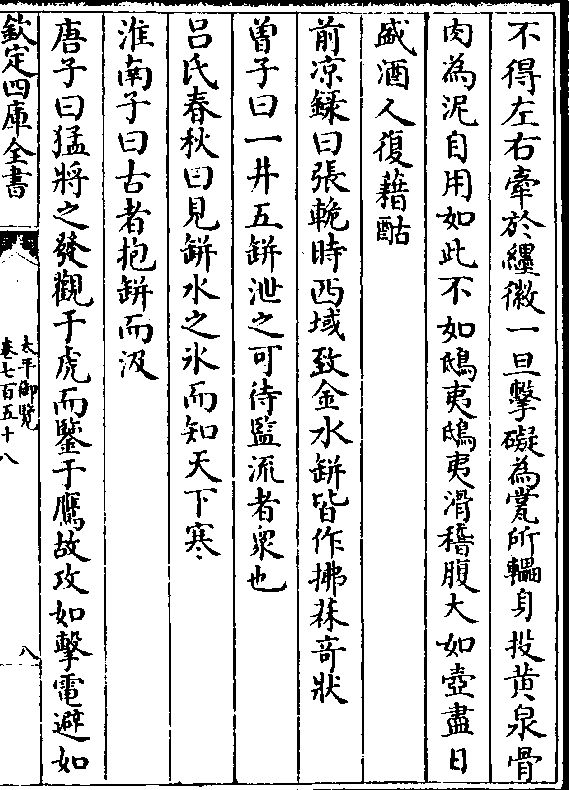 不得左右牽於纆徽一旦擊礙為甖所轠身投黄泉骨
肉為泥自用如此不如鴟夷鴟夷滑稽腹大如壺盡日
盛酒人復藉酤
前凉録曰張軌時西域致金水缾皆作拂菻竒狀
曽子曰一井五缾泄之可待監流者衆也
吕氏春秋曰見缾水之氷而知天下寒
淮南子曰古者抱缾而汲
唐子曰猛將之發觀于虎而鑒于鷹故攻如擊電避如
欽定四庫全書
太平御覽
卷七百五十八
八